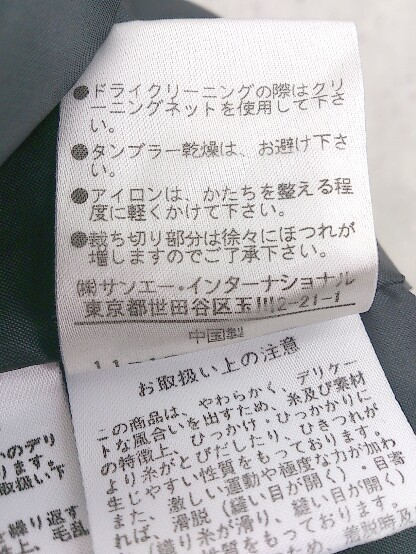 ●ドライクリーニングの際はクリ
ーニングネットを使用して下さ
い。
●タンブラー乾燥は、お避け下さ
い。
●アイロンは、かたちを整える程
度に軽くかけて下さい。
●裁ち切り部分は徐々にほつれが
増しますのでご了承下さい。
㈱サンエー・インターナショナル
東京都世田谷区玉川2-21-1
中国製
お取扱い上の注意
この商品は、やわらかく、デリケー
トな風合いを出すため、糸及び素材
の特徴上、ひっかけ・ひっかかりに
より糸がとびだしたり、ひきつれが
生じやすい性質をもっております。
また、激しい運動や極度な力が加わ
滑脱(縫い目が開く)・目寄
り糸が滑り、縫い目が開く)
性質をもっております。
ため、着脱時及び
のデリ
ります。
取扱い下
繰り返す